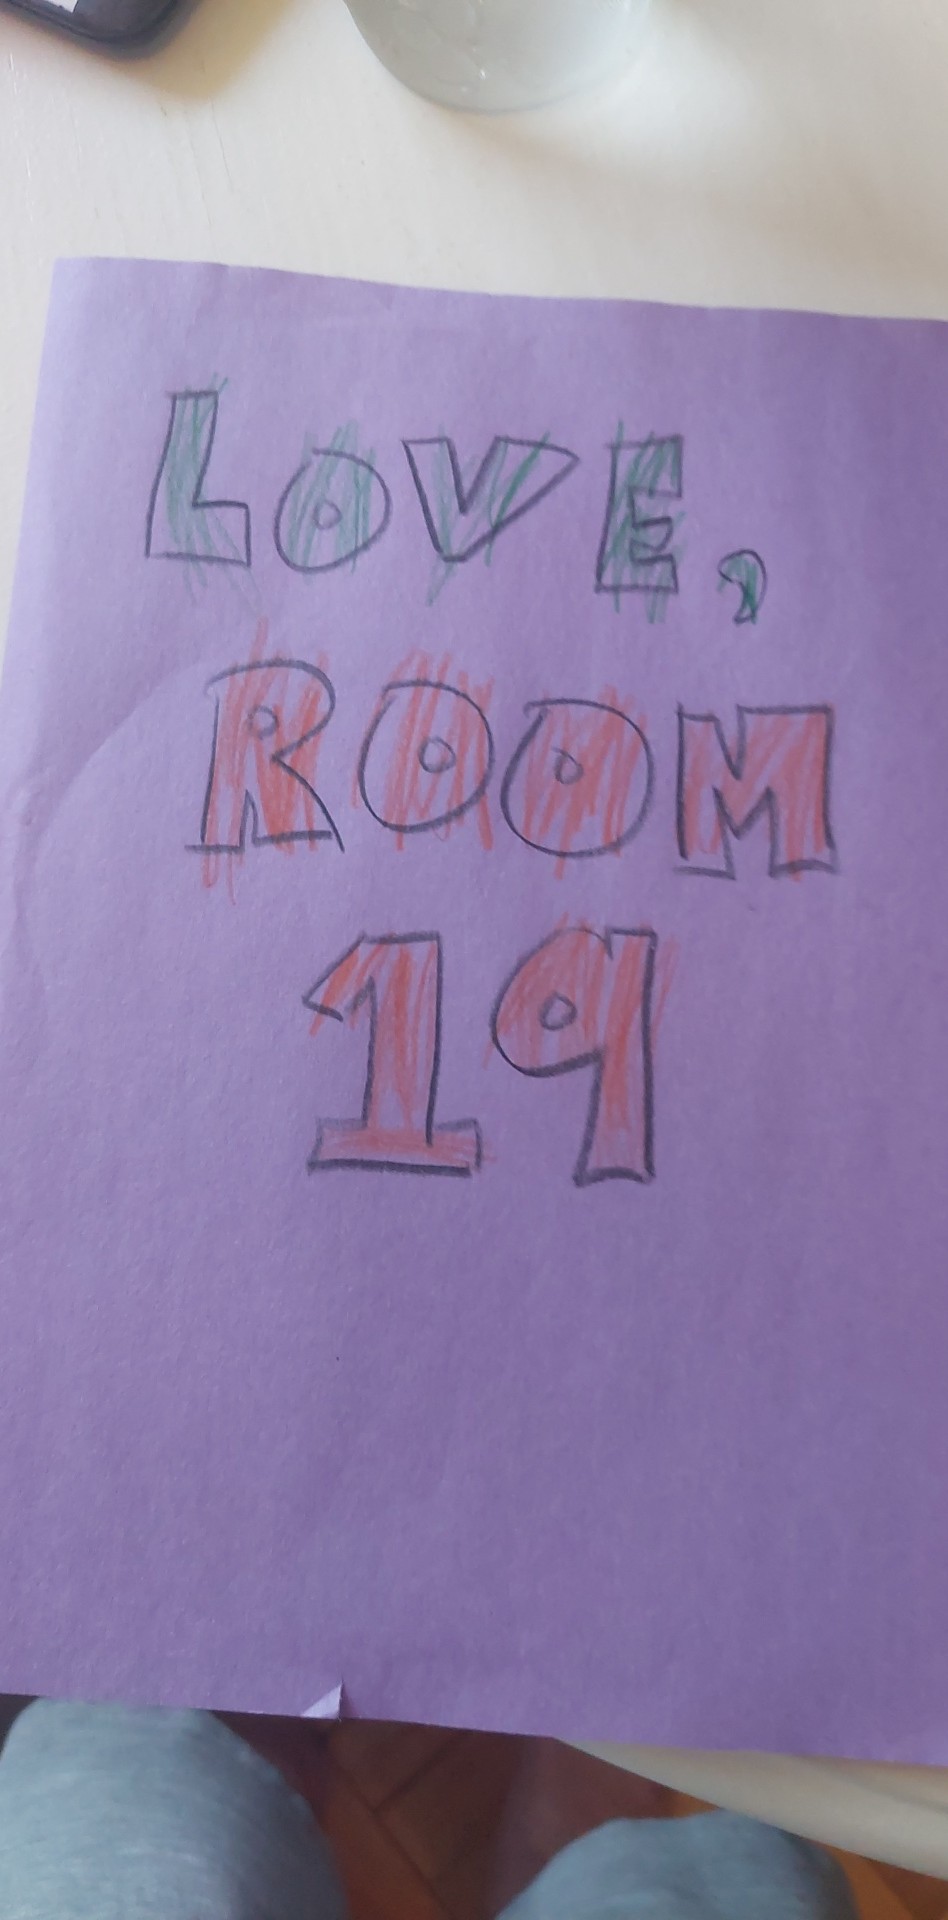 LOVE,
ROOM
19